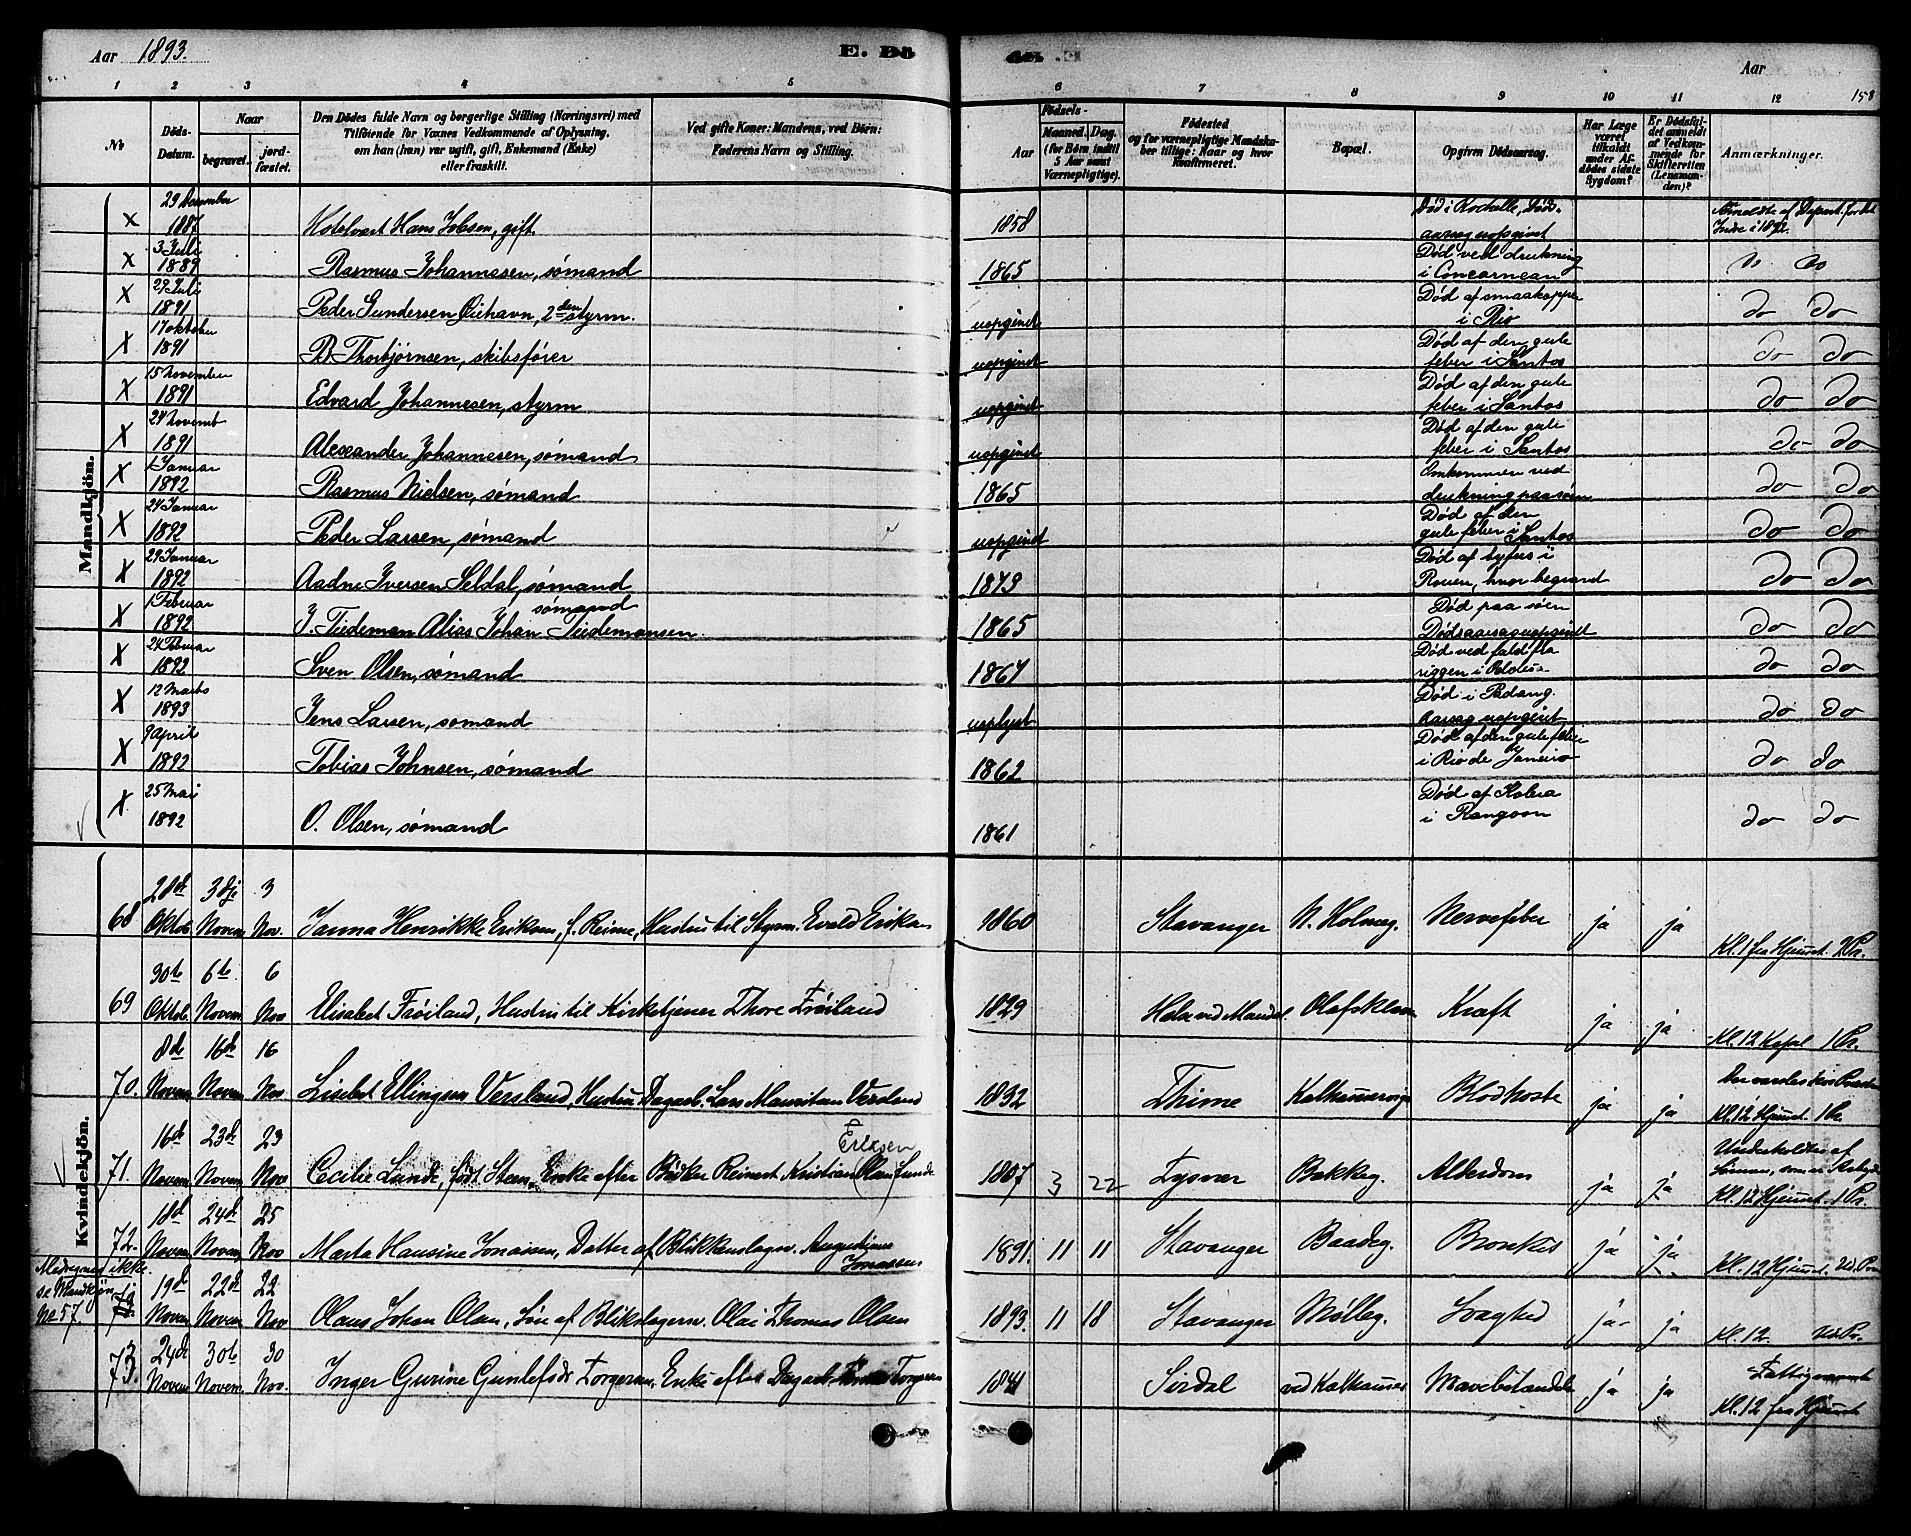 Aar 1893.
E. Dö
de. E.
Aar
158
1 2 3 4 5 6 7 8 9 10 11 12
No
Döds-Datum.
Naar
begravet.
jord-fæstet.
Den Dödes fulde Navn og borgerlige Stilling (Næringsvei) med
Tilföiende for Voxnes Vedkommende af Oplysning,
om han (hun) var ugift, gift, Enkemand (Enke)
eller fraskilt.
Ved gifte Koner: Mandens, ved Börn:
Faderens Navn og Stilling.
Födsels-
Aar
Maaned. Dag.
(for Börn indtil
5 Aar samt
Værnepligtige).
Födested
og for værnepligtige Mandska-
ber tillige: Naar og hvor
konfirmeret.
Bopæl.
Opgiven Dödsaarsag.
Har Læge
været
tilkaldt
under Af-
dödes sidste
Sygdom?
Er Dödsfal-
det anmeldt
af Vedkom-
mende for
Skifteretten
(Lensman-
den)?
Anmærkninger.
Mandkjön.
x 29 December 1887 Hotelvært Hans Jobsen, gift 1858 Død i Rochelle, Død-
aarsag uopgivet Anmeldte af Depart. for det Indre i 1892.
x 3 Juli 1889 Rasmus Johannesen, sømand 1865 Død ved drukning
i Concarnean do do
x 29 Juli 1891 Peder Gundersen Qiehavn, 2den styrm. uopgivet Død af smaakopper
i Rio do do
x 17 oktober 1891 B. Thorbjørnsen, skibsfører uopgivet Død af den gule
feber i Santos do do
x 15 November 1891 Edvard Johannesen, styrm uopgivet Død af den gule
feber i Santos do do
x 24 Novemb 1891 Alexander Johannesen, sømand uopgivet Død af den gule
feber i Santos do do
x 1 Januar 1892 Rasmus Nielsen, sømand 1865 Omkommen ved
drukning paa søen do do
x 24 Januar 1892 Peder Larsen, sømand uopgivet Død af den
gule feber i Santos do do
x 29 Januar 1892 Aadne Iversen Seldal, sømand 1873 Død af tyfus i
Rouen, hvor begravd do do
x 1 Februar 1892 J. Tiedeman Alias Johan Tiedemansen. sømand 1865 Død paa søen
Dødsaarsag uopgivet do do
x 24 Februar 1892 Sven Olsen, sømand 1867 Død ved fald fra
riggen i do do
x 12 Marts 1893 Jens Larsen, sømand uoplyst Død i Padang.
Aarsag uopgivet do do
x 9 April 1892 Tobias Johnsen, sømand 1862 Død af den gule feber
i Rio de Janeiro do do
x 25 Mai 1892 O. Olsen, sømand 1861 Død af Kolera
i Rangoon do do
Kvindekjön.
68 28de Oktob 3dje Novem 3 Nov. Janna Henrikke Eriksen, f. Reime, Hustru til Styrm. Evald Eriksen 1860 Stavanger N. Holmeg. Nervefeber ja ja Kl. 1 fra Hjemmet. 2 Pr.
69 30te Oktob. 6te Novem. 6 Nov Elisabet Frøiland, Hustru til Kirketjener Thore Frøiland 1829 Holm ved Mandal Olafskleven Kræft ja ja Kl. 12 Kapel 1 Pr.
70. 8de Novem 16de Novem 16 Nov Lisebet Ellingsen Versland, Hustru Dagarb. Lars Mauritsen Versland 1832 Thime Kalhammervige Blodhoste ja ja Kl. 12 Hjemmet. 1 Pr.
71. 16de Novem 23de Novem 23 Nov Cecilie Lunde, født Steen, Enke efter Bødker Reinert Kristian (Olai) Lunde Eriksen 1807 3 22 Tysvær Bakkeg. Alderdom ja ja Underholdtes af
Sønnen, Kl. 12 Hjemmet. 1 Pr.
72. 18de Novem 24de Novem 25 Nov Marta Hansine Jonassen, Datter af Blikkenslager. Augustinus Jonassen 1891. 11 11 Stavanger Baadeg. Bronkit ja ja Kl. 12 Hjemmet. Ud. Pr.
Medregnes ikke.
se Mandkjøn
No 57. 19de Novem 22de Novem 22 Nov Olaus Johan Olsen, Søn af Blikslagerm. Olai Thomas Olsen 1893. 11 18 Stavanger Mølleg. Svaghed ja ja Kl. 12. Ud. Pr.
73. 24de Novem 30te Novem. 30 Nov. Inger Gurine Gunlefsdr Torgersen, Enke efter Dagarb. Torgersen 1841 Sirdal ved Kalhammer Mavebetændelse ja ja Fattigvæsenet
Kl. 12 fra Hjemmet